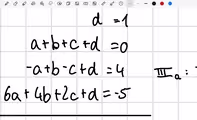 d = 1
a+b+c+d = 0
-a+b-c+d = 4
III a :
6a+4b+2c+d = -5